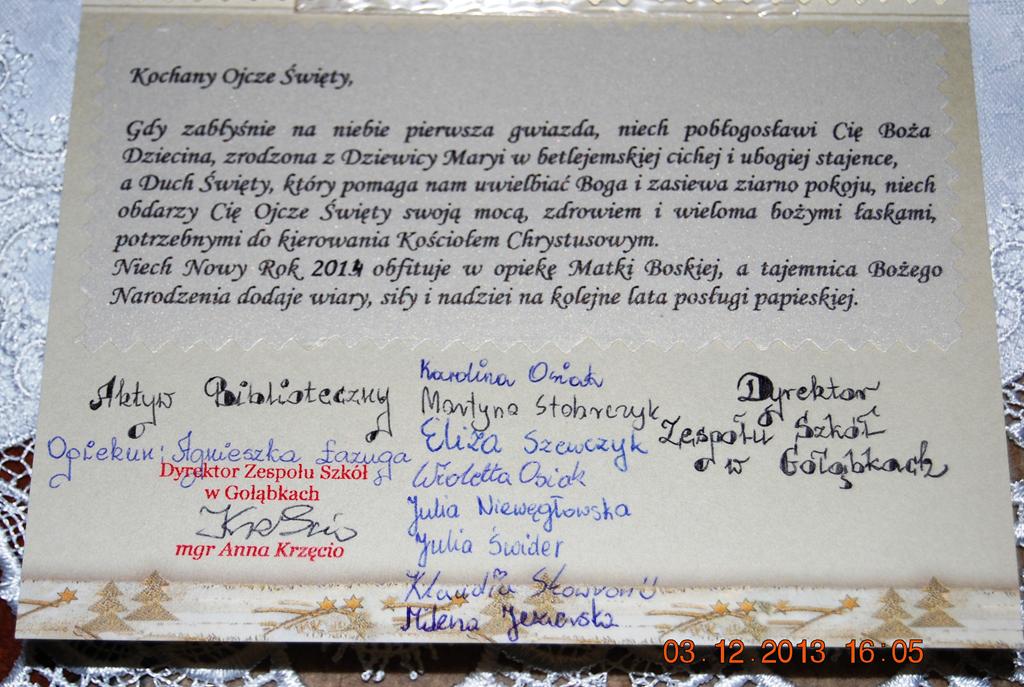 Kochany Ojcze Święty,
Gdy zabłyśnie na niebie pierwsza gwiazda, niech pobłogosławi Cię Boża
Dziecina, zrodzona z Dziewicy Maryi w betlejemskiej cichej i ubogiej stajence,
a Duch Święty, który pomaga nam uwielbiać Boga i zasiewa ziarno pokoju, niech
obdarzy Cię Ojcze Święty swoją mocą, zdrowiem i wieloma bożymi łaskami,
potrzebnymi do kierowania Kościołem Chrystusowym.
Niech Nowy Rok 2014 obfituje w opiekę Matki Boskiej, a tajemnica Bożego
Narodzenia dodaje wiary, siły i nadziei na kolejne lata posługi papieskiej.
Aktyw Biblioteczny
Opiekun: Agnieszka Łazuga
Dyrektor Zespołu Szkół
w Gołąbkach
mgr Anna Krzęcio
Karolina Osiak
Martyna Stobrczyk
Eliza Szewczyk
Wioletta Osiak
Julia Niewęgłowska
Julia Świder
Klaudia
Milena Jezierska
Dyrektor
Zespołu Szkół
w Gołąbkach
03.12.2013 16:05